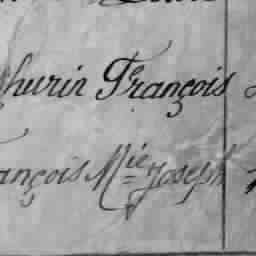 thurin François
ançois M^ie Joseph